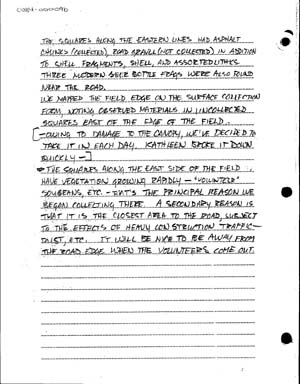 THE SQUARES ALONG THE EASTERN LINES HAD ASPHALT
CHUNKS (COLLECTED), ROAD GRAVEL (NOT COLLECTED) IN ADDITION
TO SHELL FRAGMENTS, SHELL, AND ASSORTED LITHICS.
THREE MODERN BEER BOTTLE FRAGS WERE ALSO FOUND
NEAR THE ROAD.
WE MAPPED THE FIELD EDGE ON THE SURFACE COLLECTION
FORM, NOTING OBSERVED MATERIALS IN
SQUARES EAST OF THE EDGE OF THE FIELD.
[-OWING TO DAMAGE TO THE CANOPY, WE'VE DECIDED TO
TAKE IT IN EACH DAY. KATHLEEN BROKE IT DOWN
QUICKLY-]
THE SQUARES ALONG THE EAST SIDE OF THE FIELD
HAVE VEGETATION GROWING RAPIDLY - "VOLUNTEER"
SOYBEANS, ETC. - THAT'S THE PRINCIPAL REASON WE
BEGAN COLLECTING THERE. A SECONDARY REASON IS
THAT IT IS THE CLOSEST AREA TO THE ROAD, SUBJECT
TO THE EFFECTS OF HEAVY CONSTRUCTION TRAFFIC -
DUST, ETC. IT WILL BE NICE TO BE AWAY FROM
THE ROAD EDGE WHEN THE VOLUNTEERS COME OUT.